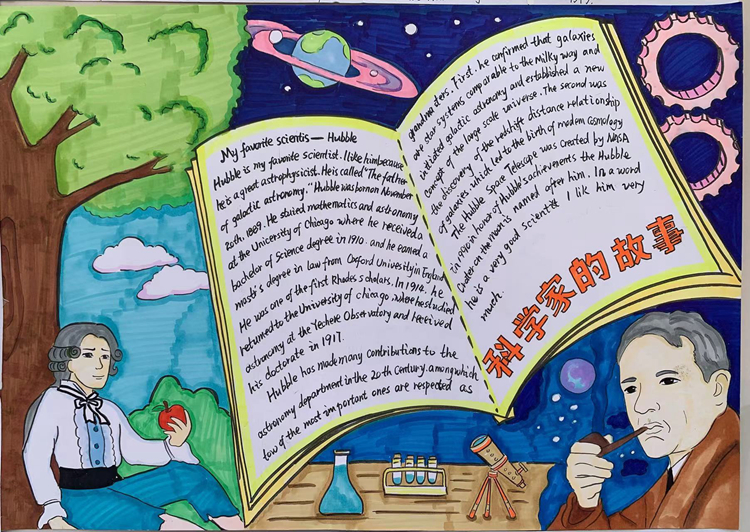 My favorite scientis — Hubble
Hubble is my favorite scientist. I like him because
he is a great astrophysicist. He is called "The father
of galactic astronomy." Hubble was born on November
20th, 1889. He studied mathematics and astronomy
at the University of Chicago where he received a
bachelor of Science degree in 1910. and he earned a
mast's degree in law from Oxford University in England
He was one of the first Rhodes scholars. In 1914, he
returned to the University of chicago where he studied
astronomy at the Yechele Observatory and received
his doctorate in 1917.
Hubble has made many contributions to the
astronomy department in the 20th Century. among which
tow of the most important ones are respected as
grandmasters. First, he confirmed that galaxies
are star systems comparable to the Milky way and
initiated galactic astronomy and established a new
concept of the large scale universe. The second was
the discovery of the redshift distance relationship
of galaxies which led to the birth of modern cosmology
The Hubble Space Telescope was created by NASA
in 1990 in honor of Hubble's achievements the Hubble
Crater on the moon is named after him. In a word
he is a very good scientist I like him very
much.
科学家的故事